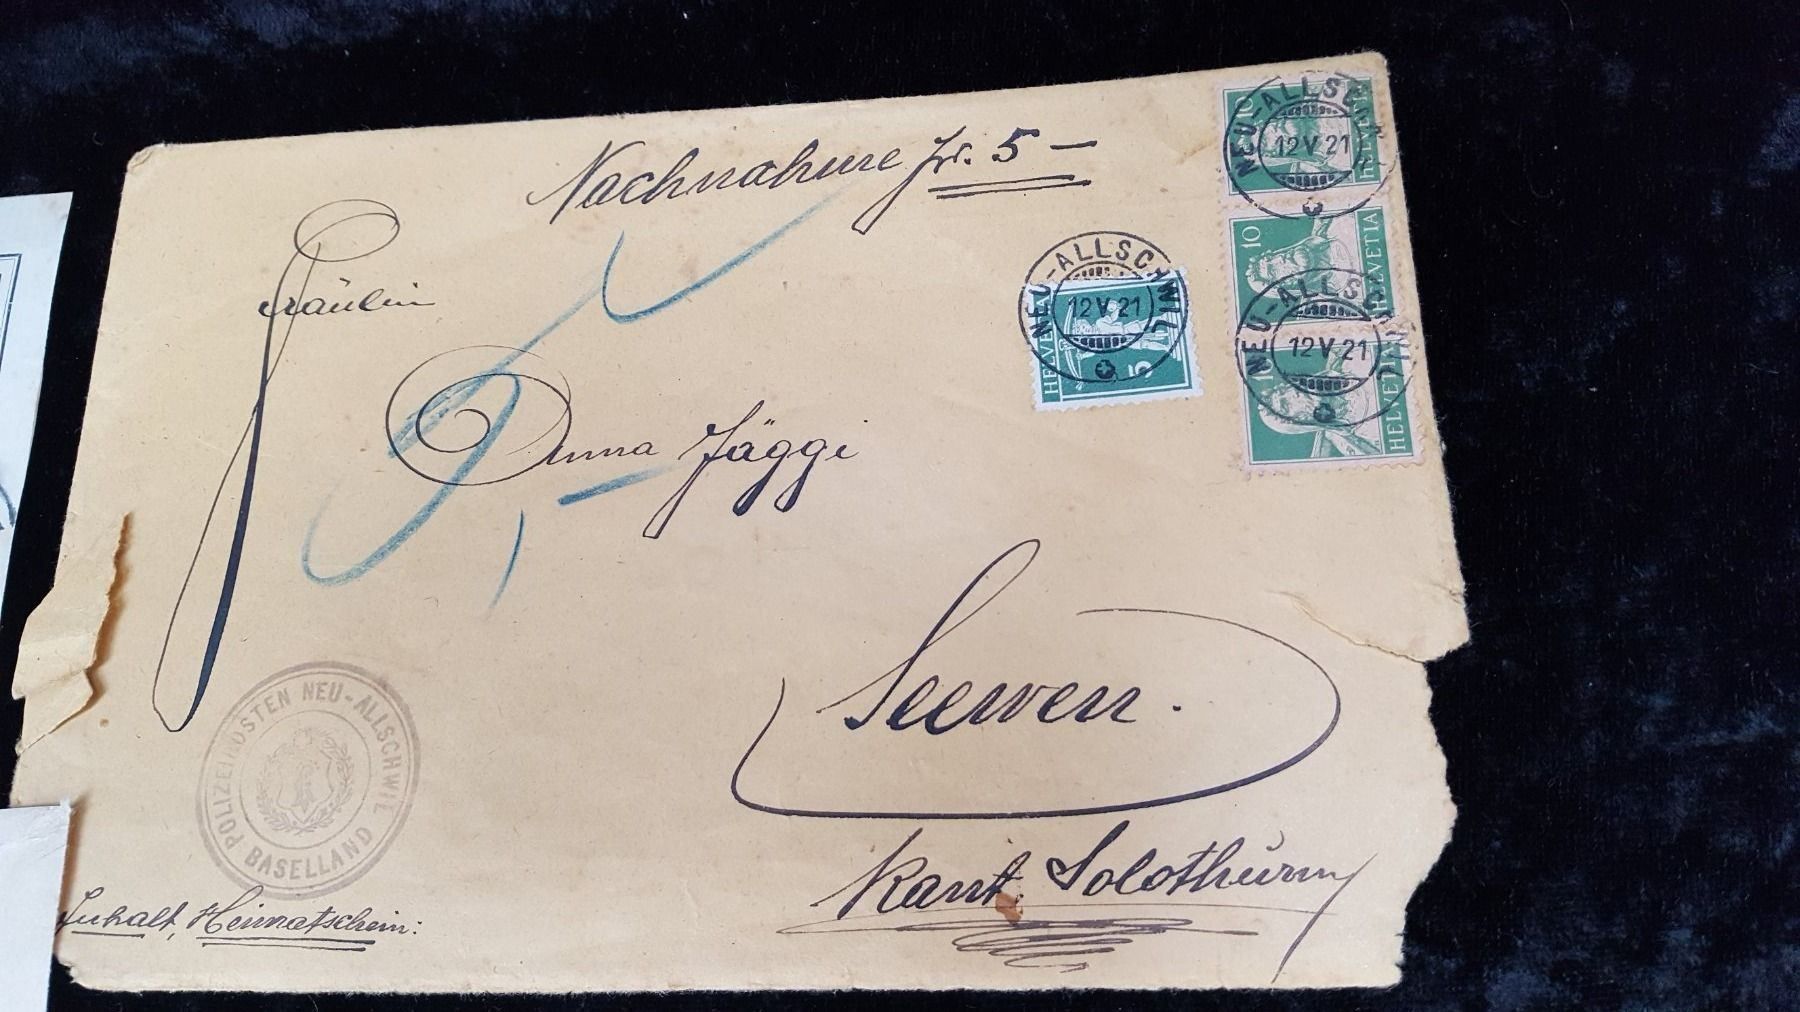 Nachnahme Fr. 5 —
Fräulein
Anna Jäggi
Seewen.
Kant. Solothurn
Inhalt, Heimatschein:
5,-
POLIZEIPOSTEN NEU-ALLSCHWIL
BASELLAND
NEU-ALLSCHWIL
12 V 21
HELVETIA
5
NEU-ALLSCHWIL
12 V 21
10
HELVETIA
10
HELVETIA
NEU-ALLSCHWIL
12 V 21
HELVETIA